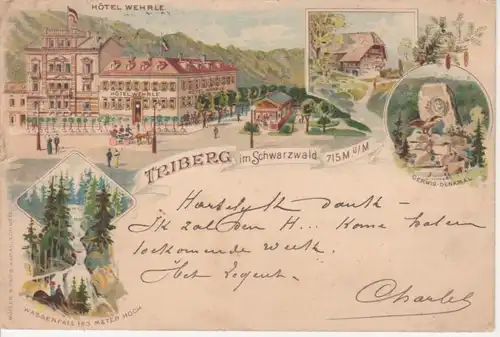 HÔTEL WEHRLE.
HÔTEL WEHRLE
TRIBERG im Schwarzwald 715 M. ü/M
GERWIG-DENKMAL
Hartelyk dank —
Ik zal den H... Kome halen
toekomende week.
Het regent.
Charles
WASSERFALL 163 METER HOCH.